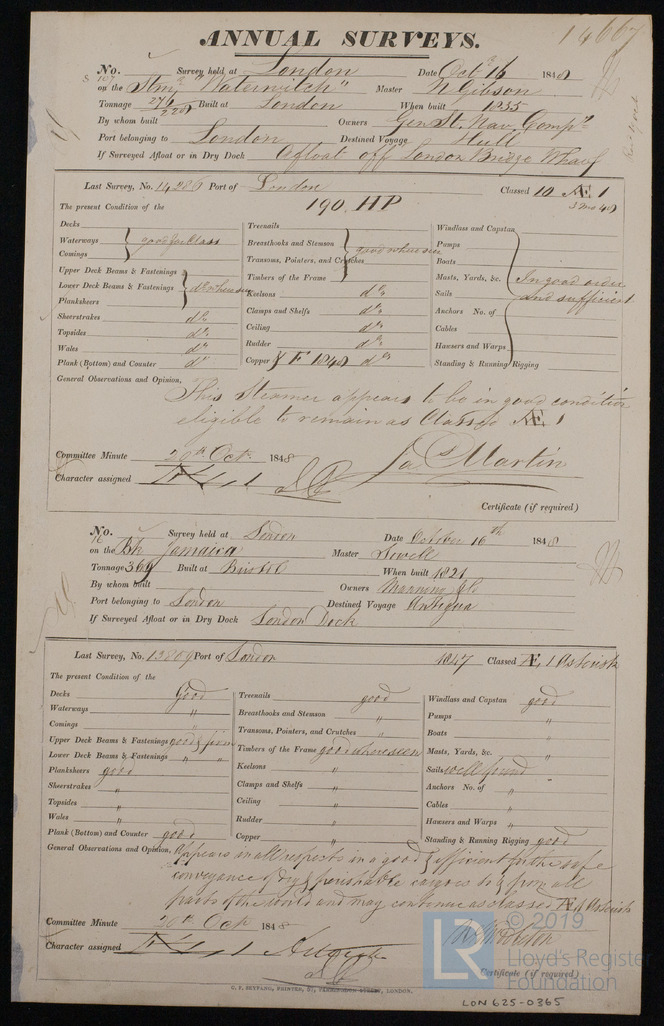 14667
ANNUAL SURVEYS.
No. Survey held at London Date Octr 16 1848
on the Stmr "Waterwitch" Master W Gibson
Tonnage 276/220 Built at London When built 1835
By whom built Owners Genl St. Nav. Compy
Port belonging to London Destined Voyage Hull
If Surveyed Afloat or in Dry Dock Afloat off London Bridge Wharf
Last Survey, No. 14286 Port of London Classed 10 Æ 1
The present Condition of the 190 HP 3 mo 48
Decks
Waterways
Comings
good for Class
Upper Deck Beams & Fastenings
Lower Deck Beams & Fastenings
Planksheers
do where seen
Sheerstrakes do
Topsides do
Wales do
Plank (Bottom) and Counter do
Treenails
Breasthooks and Stemson
Transoms, Pointers, and Crutches
Timbers of the Frame
good where seen
Keelsons do
Clamps and Shelfs do
Ceiling do
Rudder do
Copper F 1848 do
Windlass and Capstan
Pumps
Boats
Masts, Yards, &c.
Sails
Anchors No. of
Cables
Hawsers and Warps
In good order
and sufficient
Standing & Running Rigging
General Observations and Opinion,
This Steamer appears to be in good condition
eligible to remain as Classed Æ 1
Committee Minute 20th Oct. 1848
Character assigned
Jas Martin
Certificate (if required)
No. Survey held at London Date October 16th 1848
on the Bk Jamaica Master Sewell
Tonnage 369 Built at Bristol When built 1821
By whom built Owners Manning & Co
Port belonging to London Destined Voyage Antigua
If Surveyed Afloat or in Dry Dock London Dock
Last Survey, No. 13809 Port of London 1847 Classed Æ, 1 Asterisk
The present Condition of the
Decks Good
Waterways "
Comings "
Upper Deck Beams & Fastenings good & firm
Lower Deck Beams & Fastenings " "
Planksheers good
Sheerstrakes "
Topsides "
Wales "
Plank (Bottom) and Counter good
Treenails good
Breasthooks and Stemson "
Transoms, Pointers, and Crutches "
Timbers of the Frame good where seen
Keelsons "
Clamps and Shelfs "
Ceiling "
Rudder "
Copper "
Windlass and Capstan good
Pumps "
Boats "
Masts, Yards, &c. "
Sails well found
Anchors No. of "
Cables "
Hawsers and Warps "
Standing & Running Rigging good
General Observations and Opinion, Appears in all respects in a good & efficient for the safe
conveyance of dry & perishable cargoes to & from all
parts of the world and may continue as classed Æ 1 Asterisk
Committee Minute 20th Oct 1848
Character assigned
Certificate (if required)
C. F. SEYFANG, PRINTER, 57, FARRINGDON STREET, LONDON.
LON 625-0365
© 2019
LR
Lloyd's Register
Foundation